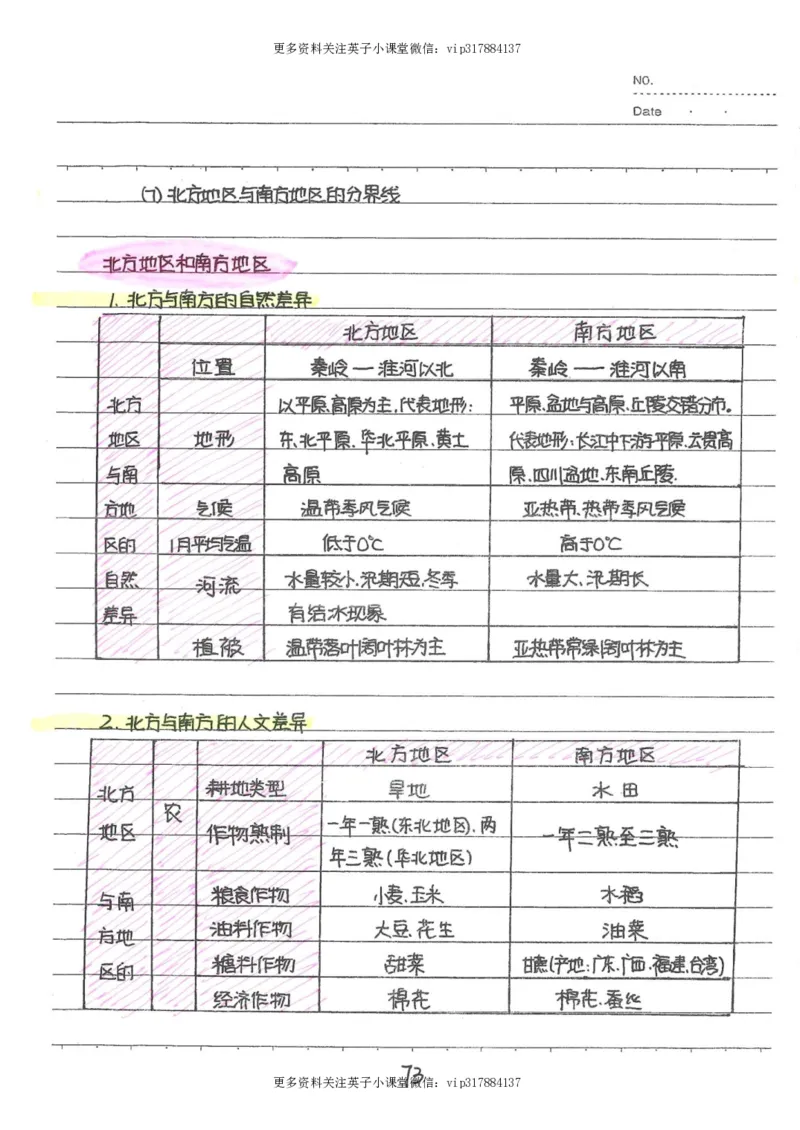 更多资料关注英子小课堂微信：vip317884137
NO.
Date
(7) 北方地区与南方地区的分界线
北方地区和南方地区
1. 北方与南方的自然差异
北方地区 南方地区
位置 秦岭—淮河以北 秦岭—淮河以南
北方 以平原、高原为主,代表地形: 平原、盆地与高原、丘陵交错分布。
地区 地形 东北平原、华北平原、黄土 代表地形:长江中下游平原、云贵高
与南 高原 原、四川盆地、东南丘陵.
方地 气候 温带季风气候 亚热带、热带季风气候
区的 1月平均气温 低于0℃ 高于0℃
自然 河流 水量较小、汛期短、冬季 水量大、汛期长
差异 有结冰现象
植被 温带落叶阔叶林为主 亚热带常绿阔叶林为主
2. 北方与南方的人文差异
北方地区 南方地区
北方 耕地类型 旱地 水田
地区 农 作物熟制 一年一熟(东北地区)、两 一年二熟至三熟
年三熟(华北地区)
与南 粮食作物 小麦、玉米 水稻
方地 油料作物 大豆、花生 油菜
区的 糖料作物 甜菜 甘蔗(产地:广东、广西、福建、台湾)
经济作物 棉花 棉花、蚕丝
73
更多资料关注英子小课堂微信：vip317884137